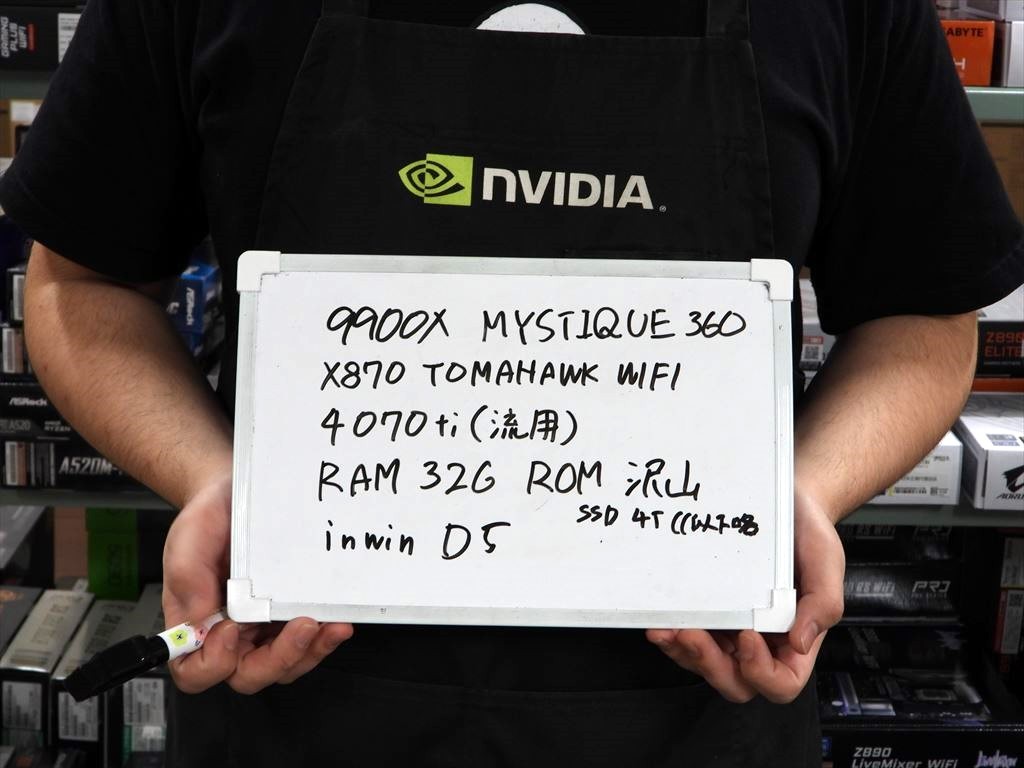 GAMING
PLUS WIFI
GABYTE
NVIDIA
9900X MYSTIQUE 360
X870 TOMAHAWK WIFI
4070ti (流用)
RAM 32G ROM 沢山
SSD 4T ((以下略
inwin D5
Z890
ELITE
ASRock
A520
A520M-
AORUS
PRO
Z890
LiveMixer WiFi